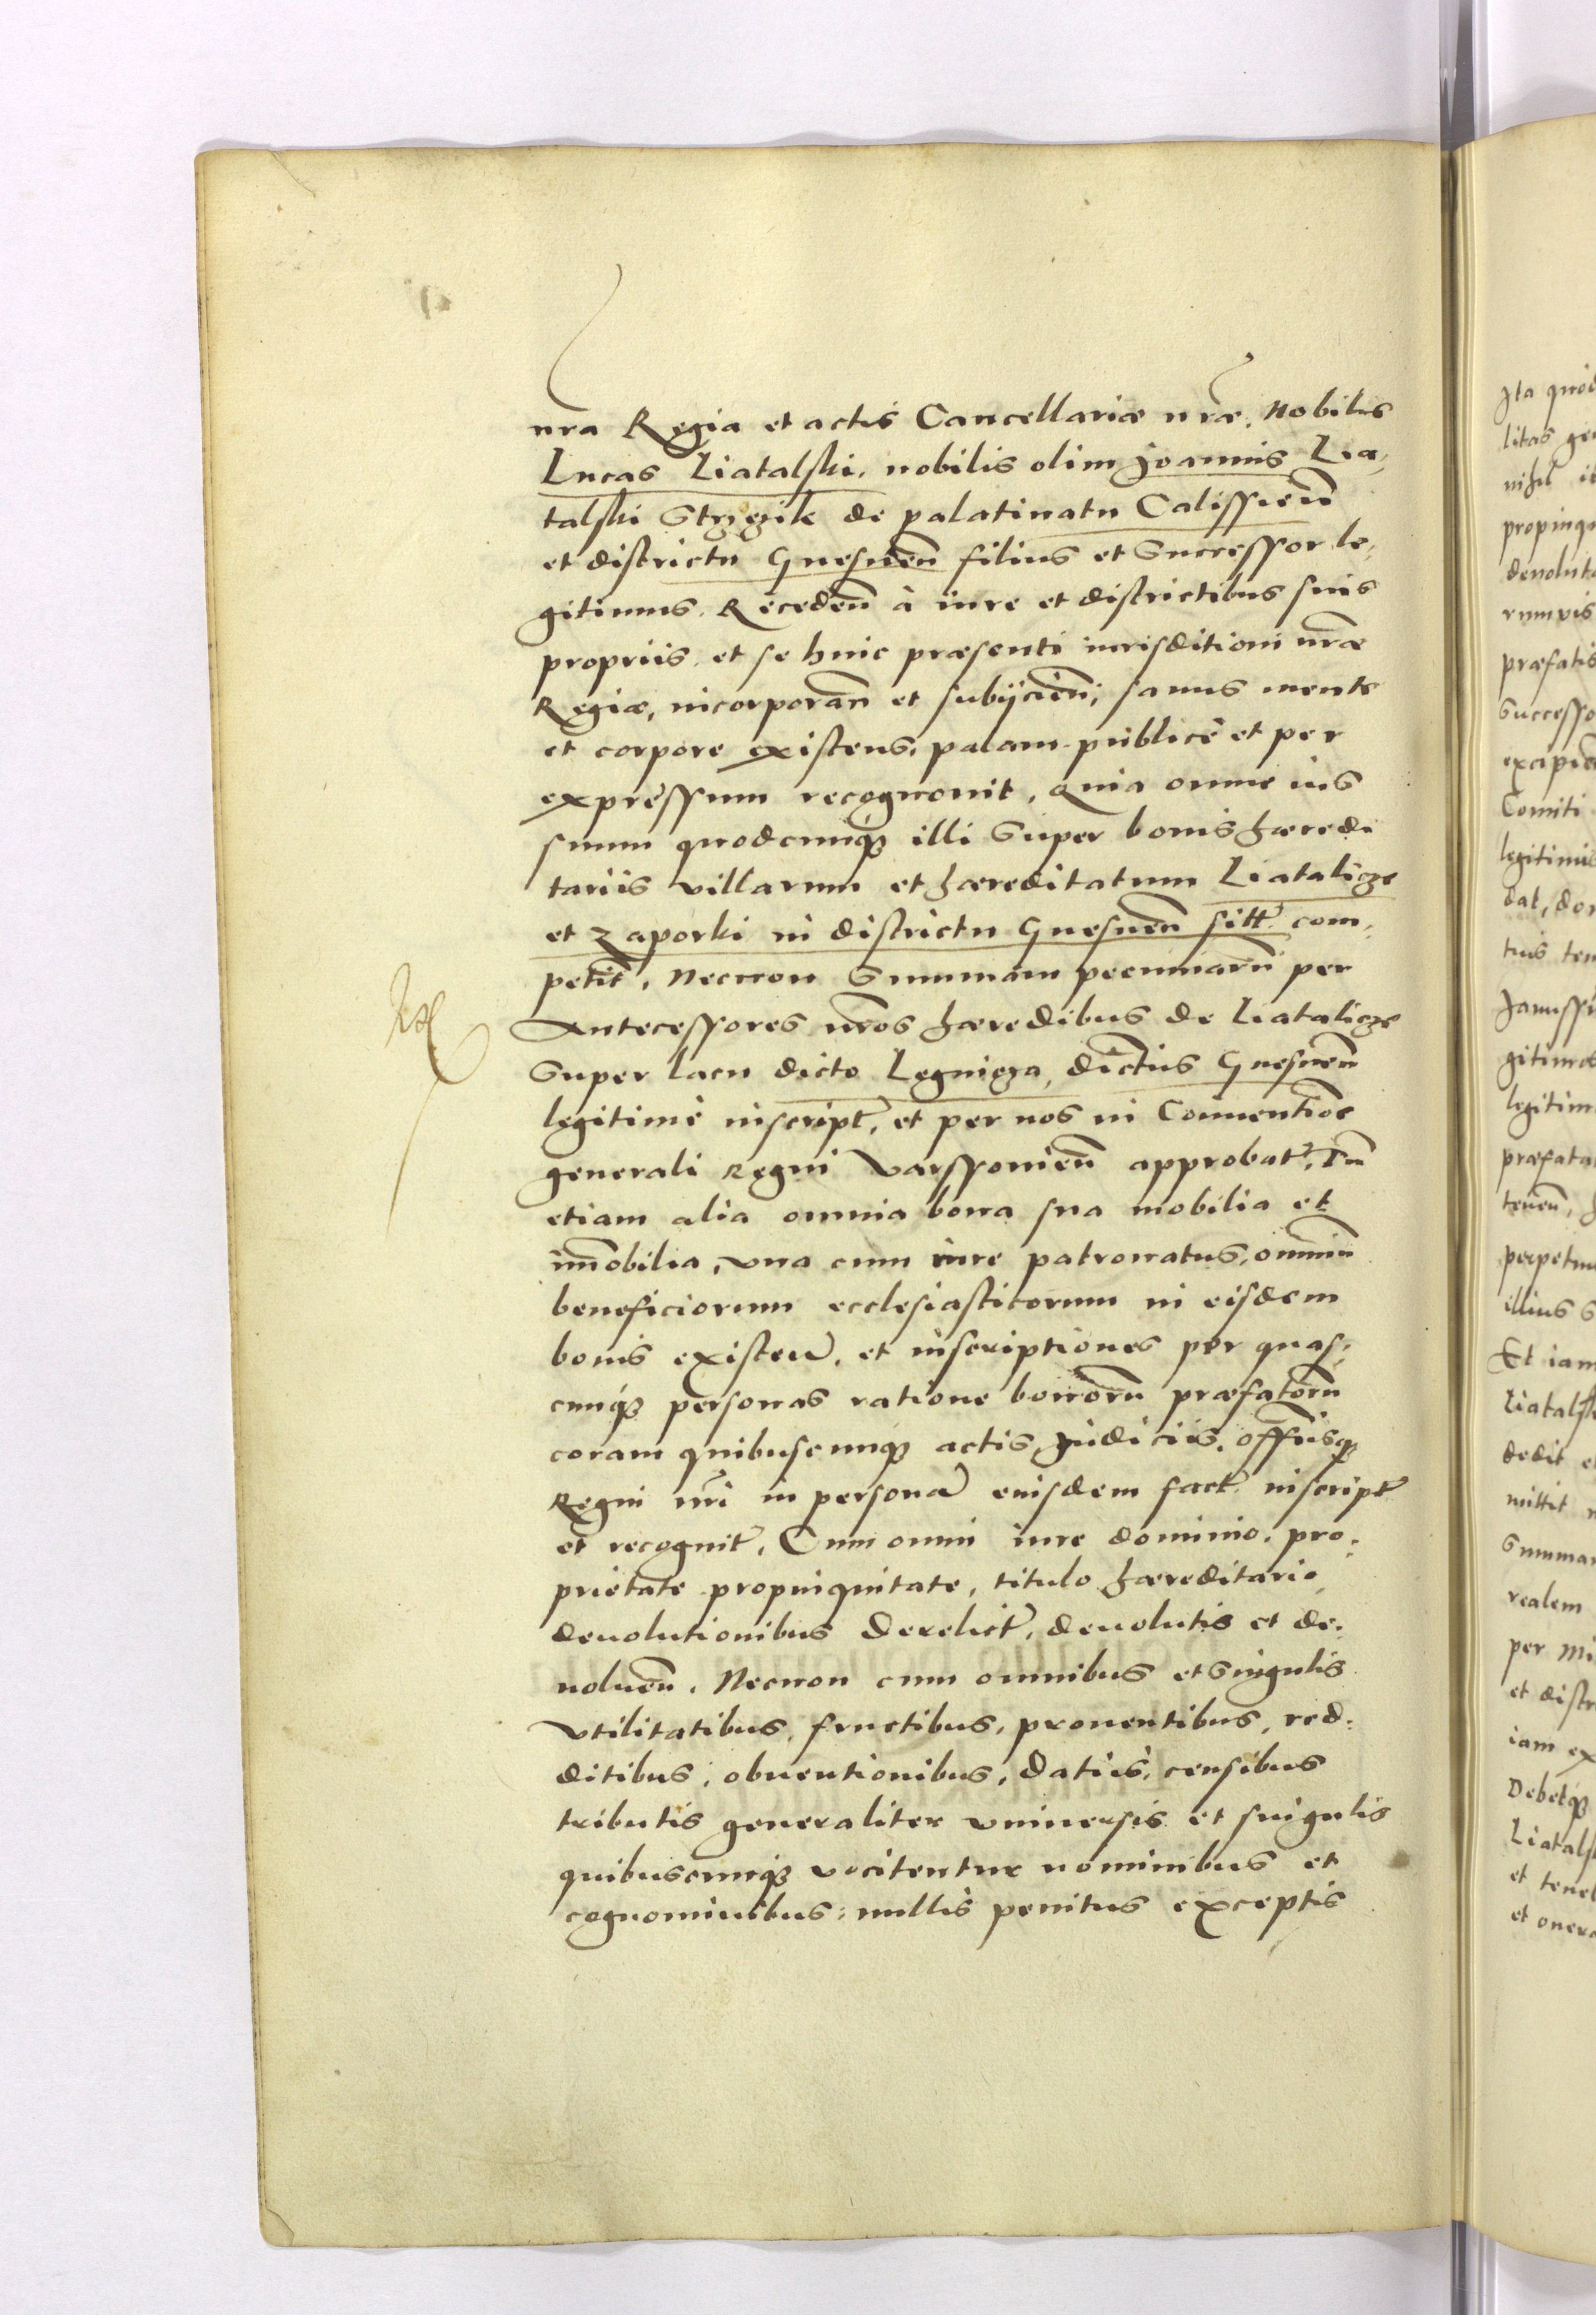 nra Regia et actis Cancellariæ nræ, Nobilis
Lucas Liatalski, nobilis olim Joannis Lia,
talski Strzezik de palatinatu Calissien
et districtu Gnesnen filius et Successor le,
gitimus, Receden à iure et districtibus suis
propriis, et se huic præsenti iurisditioni nræ
Regiæ, incorporan et subijcien, sanus mente
et corpore existens, palam publicè et per
expressum recognouit, Quia omne ius
suum quodcunqz illi Super bonis hæredi
tariis villarum et hæreditatum Liatalicze
et Zaporki in districtu Gnesnen sitt com,
petit, Necnon Summam pecuniaru per
Antecessores nros hæredibus de Liatalicze
Super lacu dicto Legnicza, dictus Gnesnen
legitimè inscript, et per nos in Conuentioe
generali Regni Varssouien approbat, Tu
etiam alia omnia bona sua mobilia et
imobilia, vna cum iure patronatus, omniu
beneficiorum ecclesiasticorum in eisdem
bonis existen, et inscriptiones per quas,
cunqz personas ratione bonoru præfatoru
coram quibuscunqz actis, Judiciis, offusqz
Regni nri in persona eiusdem fact inscript
et recognit, Cum omni iure dominio, pro,
prietate propinquitate, titulo hæreditario
deuolutionibus Derelict, deuolutis et de,
uoluen, Necnon cum omnibus et Singulis
vtilitatibus, fructibus, prouentibus, red,
ditibus, obuentionibus, Datiis, censibus
tributis generaliter vniuersis et singulis
quibuscunqz vocitentur nominibus et
cognominibus, nullis penitus exceptis
Ita quod
litas gen
nihil
propinqu
deuolut
rumvis
præfatis
Successo
excipien
Comiti
legitimis
dat, don
tuis ten
Janussi
gitimæ
legitim
præfata
tenen,
perpetuu
illius S
Et iam
Liatalsk
dedit e
mittit
Summa
realem
per Mi
et distr
iam ex
Debetqz
Liatals
et tene
et onera